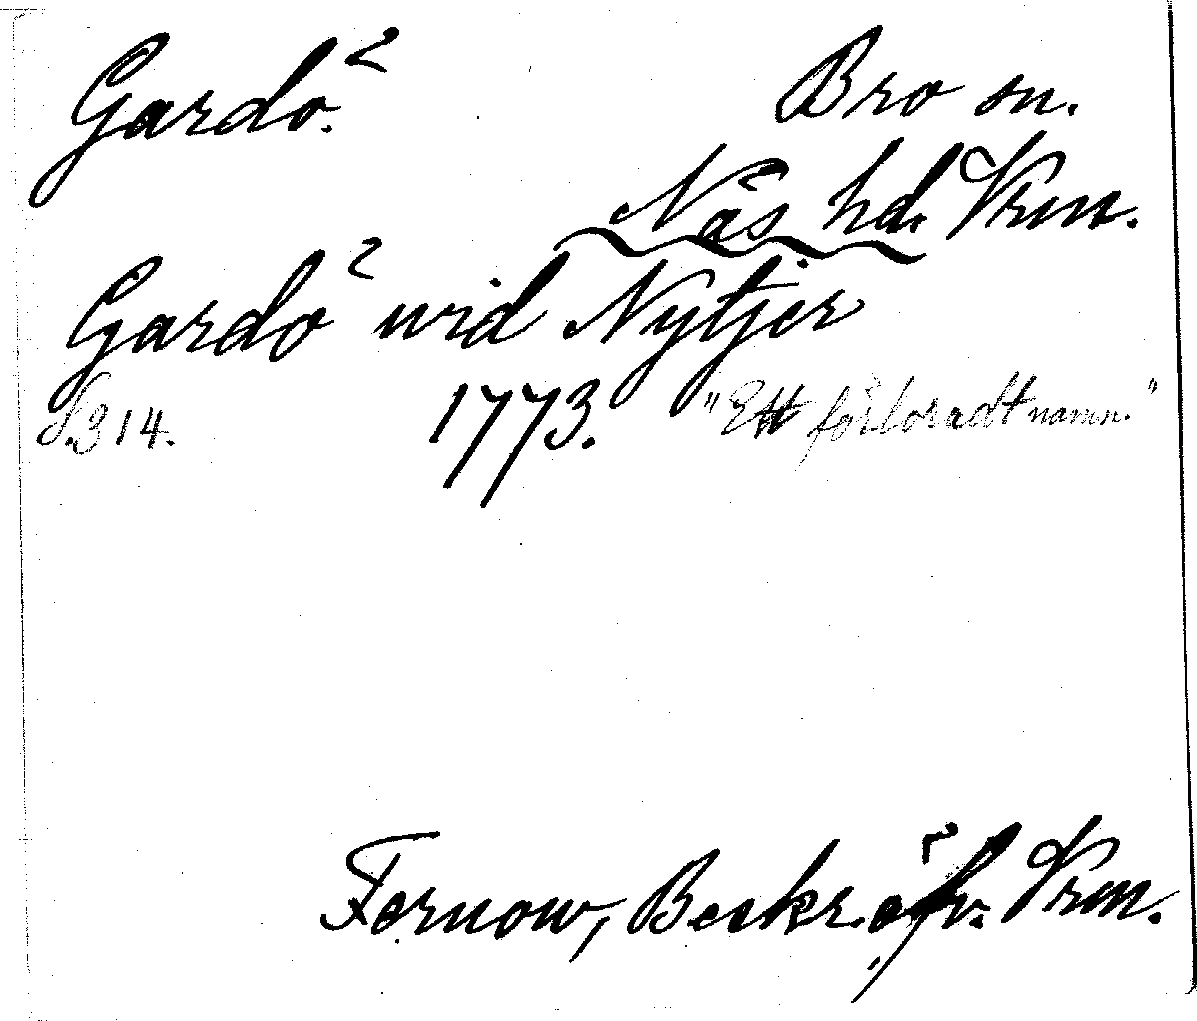 Gardo.²
Bro sn.
Näs hd. Vrm.
Gardo² wid Nytjer
S. 314. 1773. "Ett förloradt namn."
Fernow, Beskr. öfv. Vrm.